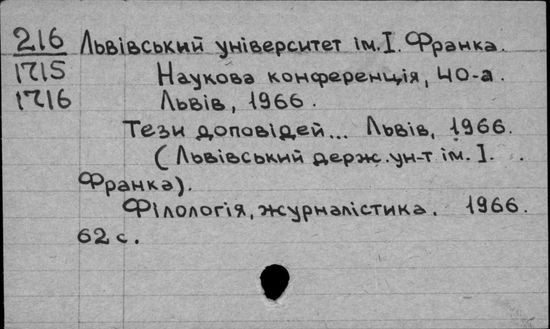 216 Львівський університет ім. І. Франка.
1715 Наукова конференція, 40-а.
1716 Львів, 1966.
Тези доповідей... Львів, 1966.
(Львівський держ. ун-т ім. І.
Франка).
Філологія, журналістика. 1966.
62 с.